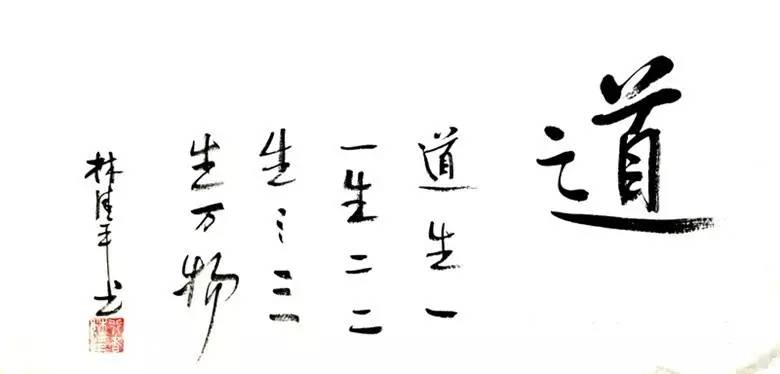 道
道生一
一生二二
生三三
生万物
林 平书